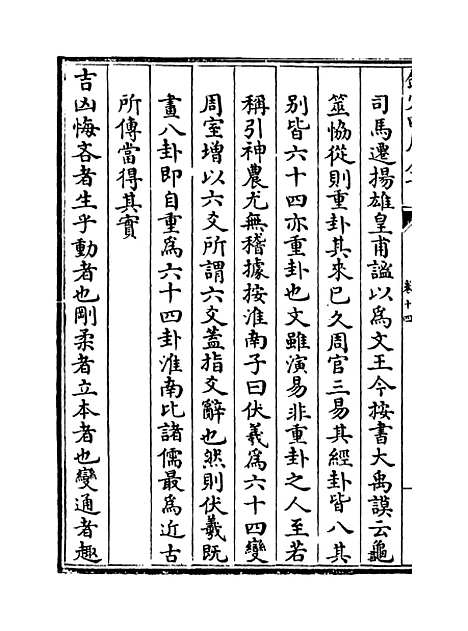 司馬遷揚雄皇甫謐以為文王今按書大禹謨云龜
筮恊從則重卦其來已久周官三易其經卦皆八其
别皆六十四亦重卦也文雖演易非重卦之人至若
稱引神農尤無稽據按淮南子曰伏羲為六十四變
周室增以六爻所謂六爻蓋指爻辭也然則伏羲既
畫八卦即自重為六十四卦淮南比諸儒最為近古
所傳當得其實
吉凶悔吝者生乎動者也剛柔者立本者也變通者趣
卷十四